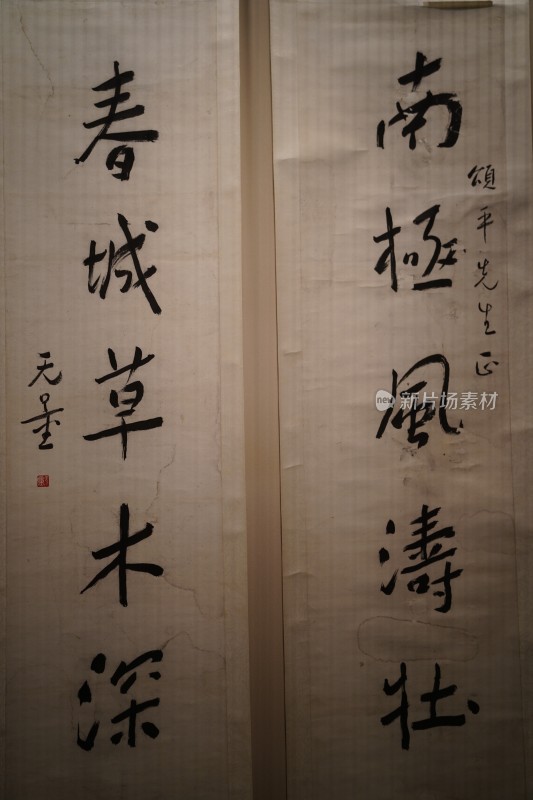 南極風濤壯
頌平先生正
春城草木深
无量
new 新片场素材